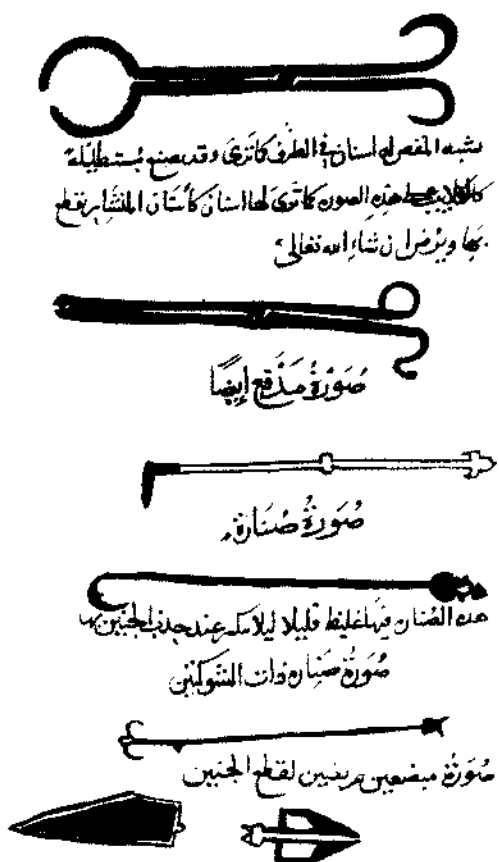 يشبه المقص له اسنان في الطرف كما ترى وقد يصنع مستطيلة
كالكلاليب على هذه الصورة كما ترى لها اسنان كأسنان المنشار يقطع
بها ويرض ان شاء الله تعالى
صُورَةُ مَدْفَع أيضًا
صُورَةُ صِنَارَة
هذه الصنارة فيها غلظ قليلا ليلا تنكسر عند جذب الجنين بها
صُورَةُ صنارة ذات الشوكتين
صُورَةُ مبضعين عريضين لقطع الجنين